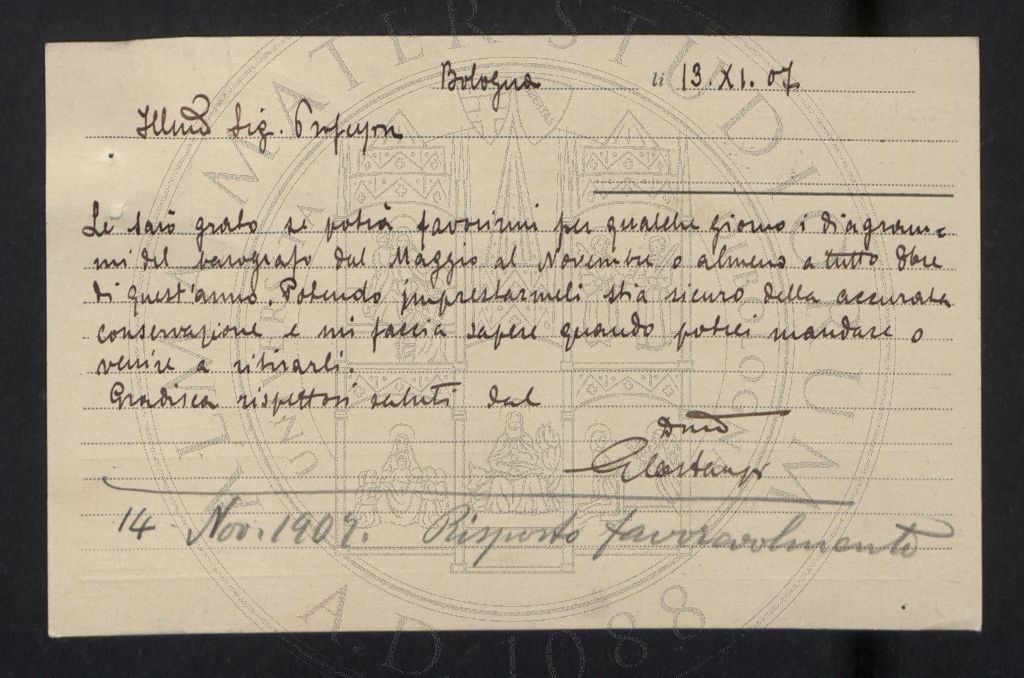 Bologna li 13. XI. 07
Illmo Sig. Professore
Le sarò grato se potrà favorirmi per qualche giorno i diagram=
mi del barografo dal Maggio al Novembre o almeno a tutto 8bre
di quest'anno. Potendo imprestarmeli stia sicuro della accurata
conservazione e mi faccia sapere quando potrei mandare o
venire a ritirarli.
Gradisca rispettosi saluti dal
Dmo
14 Nov. 1907. Risposto favorevolmente
ALMA MATER STUDIORUM
A.D. 1088